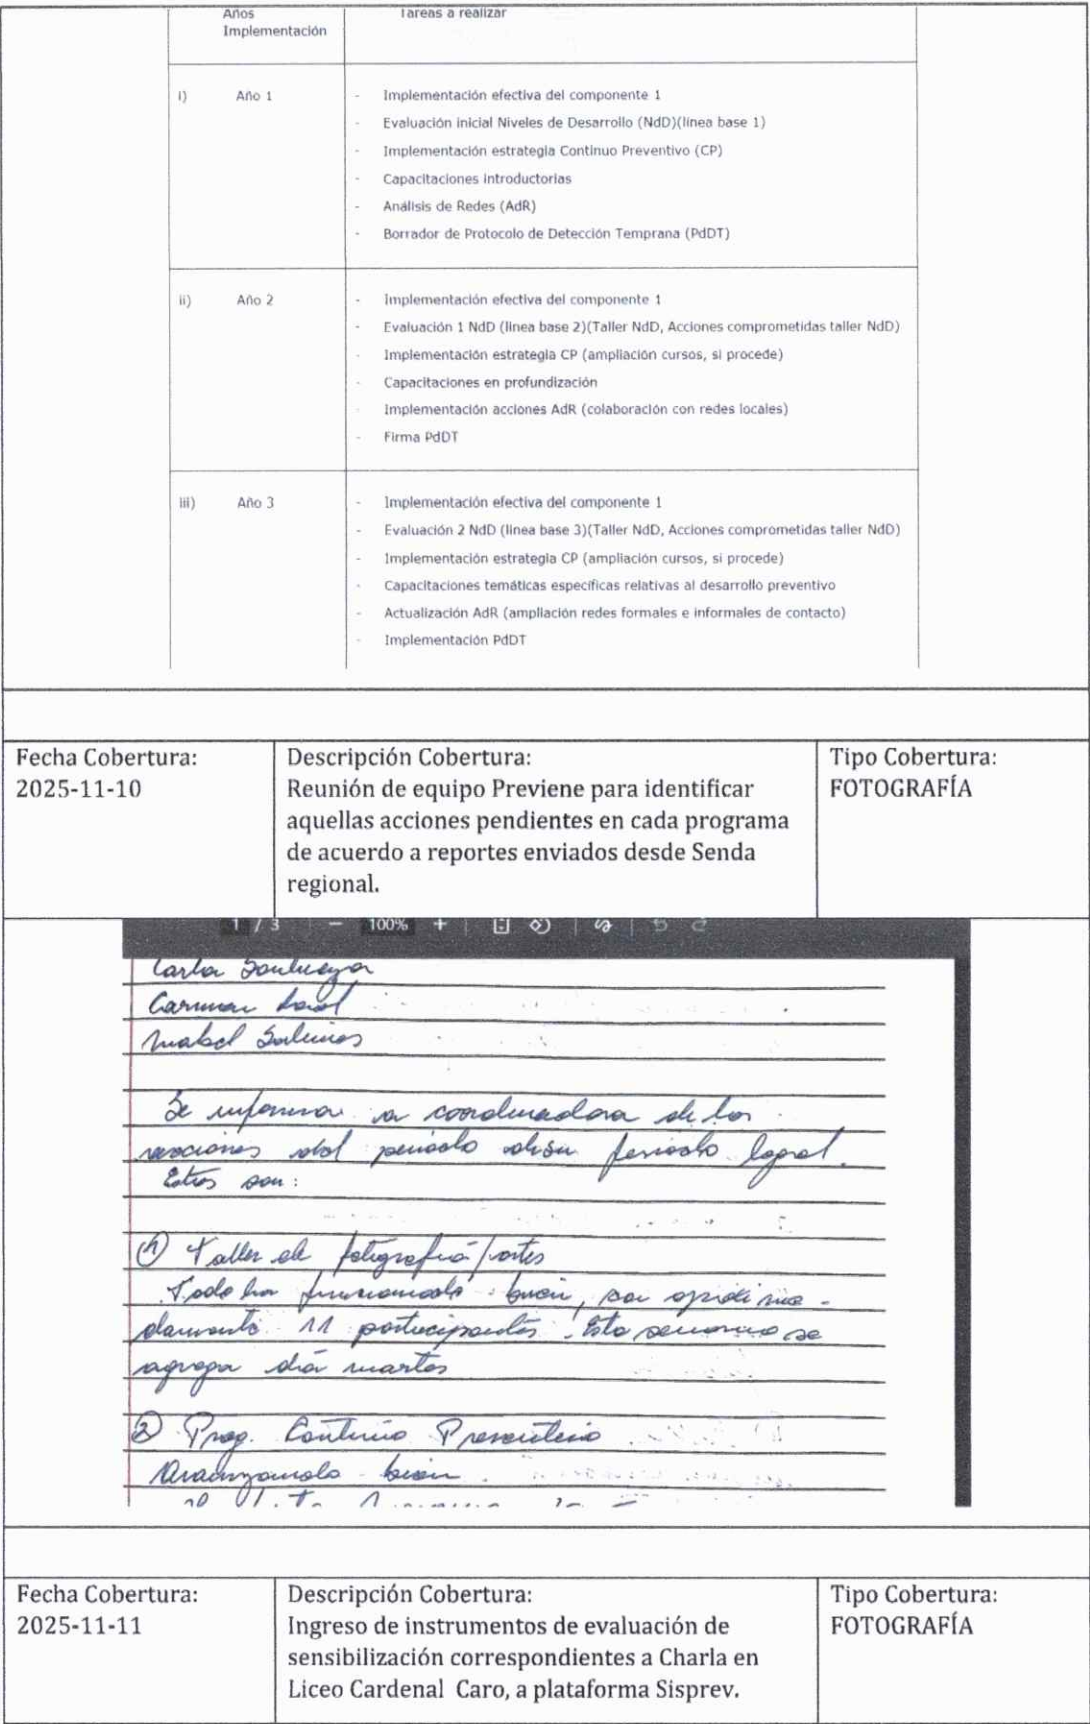 Años Tareas a realizar
Implementación
i) Año 1 - Implementación efectiva del componente 1
- Evaluación inicial Niveles de Desarrollo (NdD)(línea base 1)
- Implementación estrategia Continuo Preventivo (CP)
- Capacitaciones introductorias
- Análisis de Redes (AdR)
- Borrador de Protocolo de Detección Temprana (PdDT)
ii) Año 2 - Implementación efectiva del componente 1
- Evaluación 1 NdD (línea base 2)(Taller NdD, Acciones comprometidas taller NdD)
- Implementación estrategia CP (ampliación cursos, si procede)
- Capacitaciones en profundización
- Implementación acciones AdR (colaboración con redes locales)
- Firma PdDT
iii) Año 3 - Implementación efectiva del componente 1
- Evaluación 2 NdD (línea base 3)(Taller NdD, Acciones comprometidas taller NdD)
- Implementación estrategia CP (ampliación cursos, si procede)
- Capacitaciones temáticas específicas relativas al desarrollo preventivo
- Actualización AdR (ampliación redes formales e informales de contacto)
- Implementación PdDT
Fecha Cobertura:
2025-11-10
Descripción Cobertura:
Reunión de equipo Previene para identificar
aquellas acciones pendientes en cada programa
de acuerdo a reportes enviados desde Senda
regional.
Tipo Cobertura:
FOTOGRAFÍA
1 / 3 − 100% +
Carla
Carmen
Mabel Salinas
Se informa a coordinadora de las
acciones del periodo feriado legal.
Estos son:
① Taller de fotografía/artes
Todo ha funcionado bien, son aproxima-
damente 11 participantes. Esta semana se
agrega día martes
② Prog. Continuo Preventivo
Avanzando bien
Fecha Cobertura:
2025-11-11
Descripción Cobertura:
Ingreso de instrumentos de evaluación de
sensibilización correspondientes a Charla en
Liceo Cardenal Caro, a plataforma Sisprev.
Tipo Cobertura:
FOTOGRAFÍA